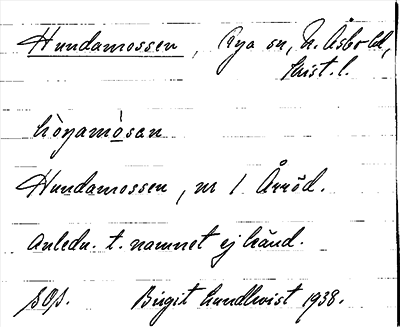 Hundamossen, Rya sn, N. Åsbo hd,
Krist. l.
hònamòsan
Hundamossen, nr 1 Årröd.
Anledn. t. namnet ej känd.
Birgit Lundkvist 1938.